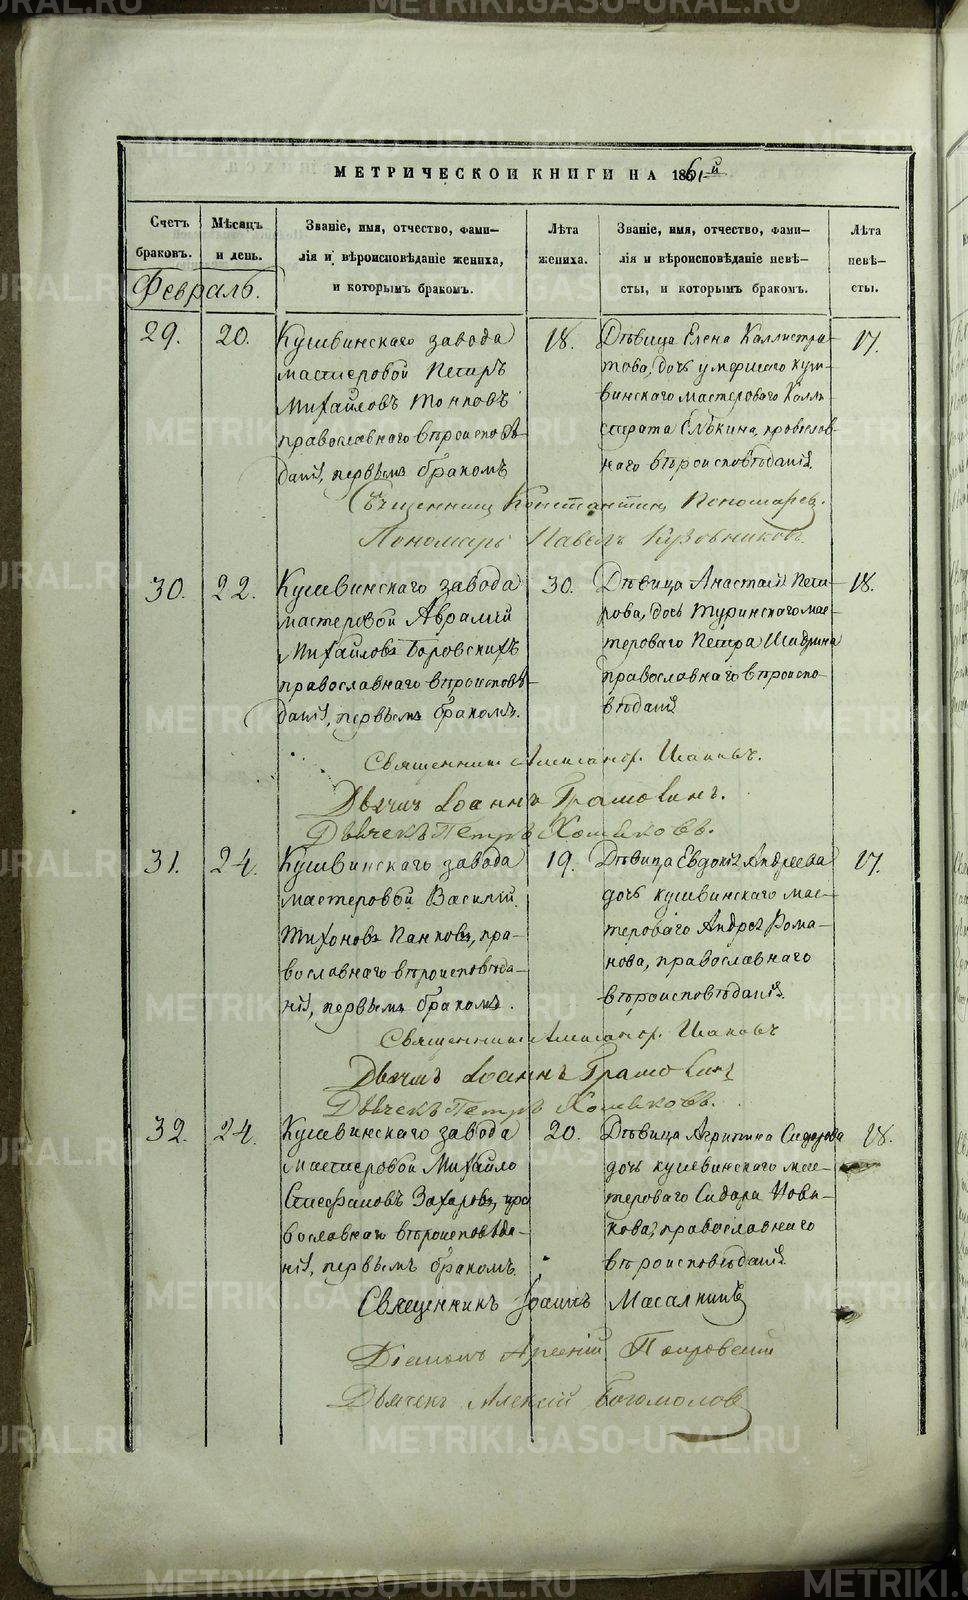 МЕТРИЧЕСКОЙ КНИГИ НА 1861й
Счетъ браковъ.
Мѣсяцъ и день.
Званіе, имя, отчество, фами-
лія и вѣроисповѣданіе жениха,
и которымъ бракомъ.
Лѣта жениха.
Званіе, имя, отчество, фами-
лія и вѣроисповѣданіе невѣ-
сты, и которымъ бракомъ.
Лѣта невѣ-
сты.
Февраль.
29.
20.
Кушвинскаго завода
мастеровой Петръ
Михайловъ Тонковъ
православнаго вѣроисповѣ-
данія, первымъ бракомъ
18.
Дѣвица Елена Каллистра-
това, дочь умершаго куш-
винскаго мастероваго Калли-
страта Елькина, православ-
наго вѣроисповѣданія.
17.
Священникъ Константинъ Пономарев.
Пономарь Павелъ Кузовниковъ.
30.
22.
Кушвинскаго завода
мастеровой Аврамій
Михайловъ Боровскихъ
православнаго вѣроисповѣ-
данія, первымъ бракомъ.
30.
Дѣвица Анастасія Пет-
рова, дочь Туринскаго мас-
тероваго Петра Шадрина
православнаго вѣроиспо-
вѣданія
18.
Священникъ Александр.
Дьячекъ Петръ Хомяковъ.
31.
24.
Кушвинскаго завода
мастеровой Василій
Тихоновъ Панковъ, пра-
вославнаго вѣроисповѣда-
нія, первымъ бракомъ.
19.
Дѣвица Евдокія Андреева
дочь кушвинскаго мас-
тероваго Андрея Рома-
нова, православнаго
вѣроисповѣданія.
17.
Священникъ Александр.
Дьячекъ Петръ Хомяковъ.
32.
24.
Кушвинскаго завода
мастеровой Михайло
Стефановъ Захаровъ, пра
вославнаго вѣроисповѣда-
нія, первымъ бракомъ.
20.
Дѣвица Агрипина Сидорова
дочь кушвинскаго мас-
тероваго Сидора Нови-
кова, православнаго
вѣроисповѣданія
18.
Священникъ Іоаннъ
Діаконъ Арсеній Покровскій
Дьячекъ Алексій Богомолов
METRIKI.GASO-URAL.RU